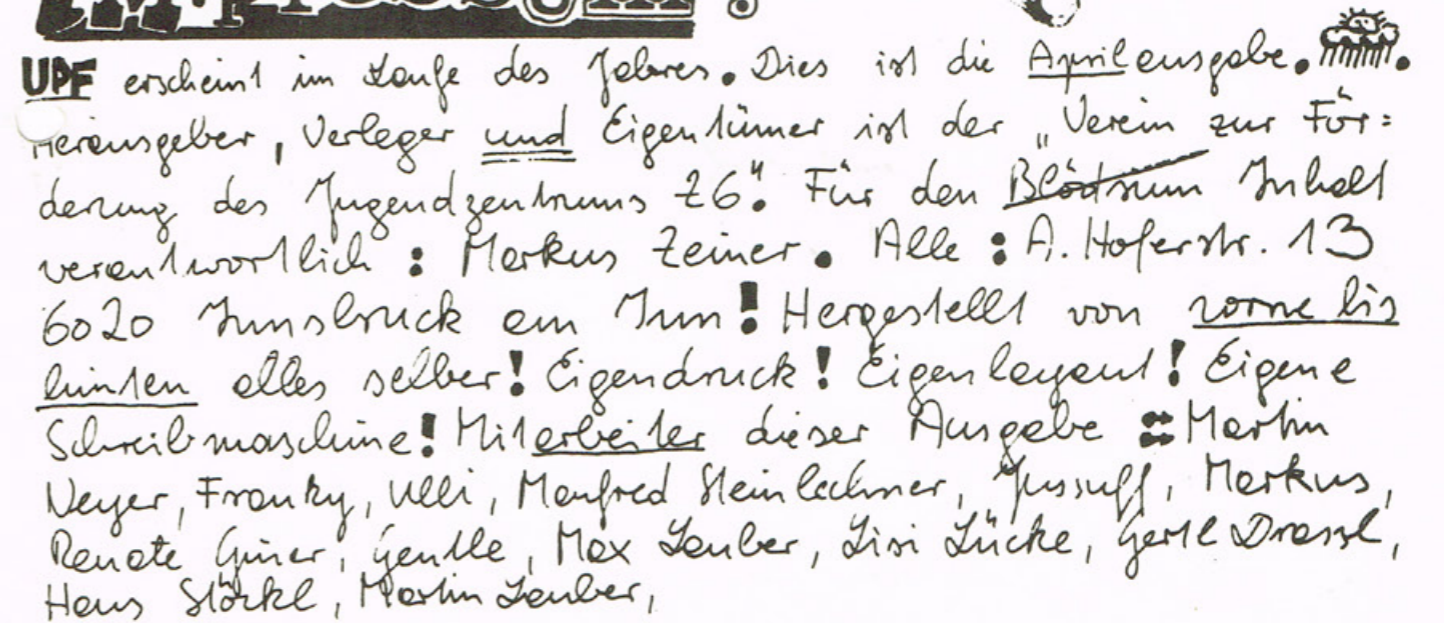 Impressum:
UPF erscheint im Laufe des Jahres. Dies ist die Aprilausgabe.
Herausgeber, Verleger und Eigentümer ist der „Verein zur För=
derung des Jugendzentrums Z6". Für den Blödsinn Inhalt
verantwortlich: Markus Zeiner. Alle: A. Hoferstr. 13
6020 Innsbruck am Inn! Hergestellt von vorne bis
hinten alles selber! Eigendruck! Eigenlayout! Eigene
Schreibmaschine! Mitarbeiter dieser Ausgabe: Martin
Neyer, Franky, Ulli, Manfred Steinlechner, Jussuff, Markus,
Renate Giner, Gentle, Max Lauber, Lisi Lücke, Gertl Drassl,
Hans Stöckl, Martin Lauber,